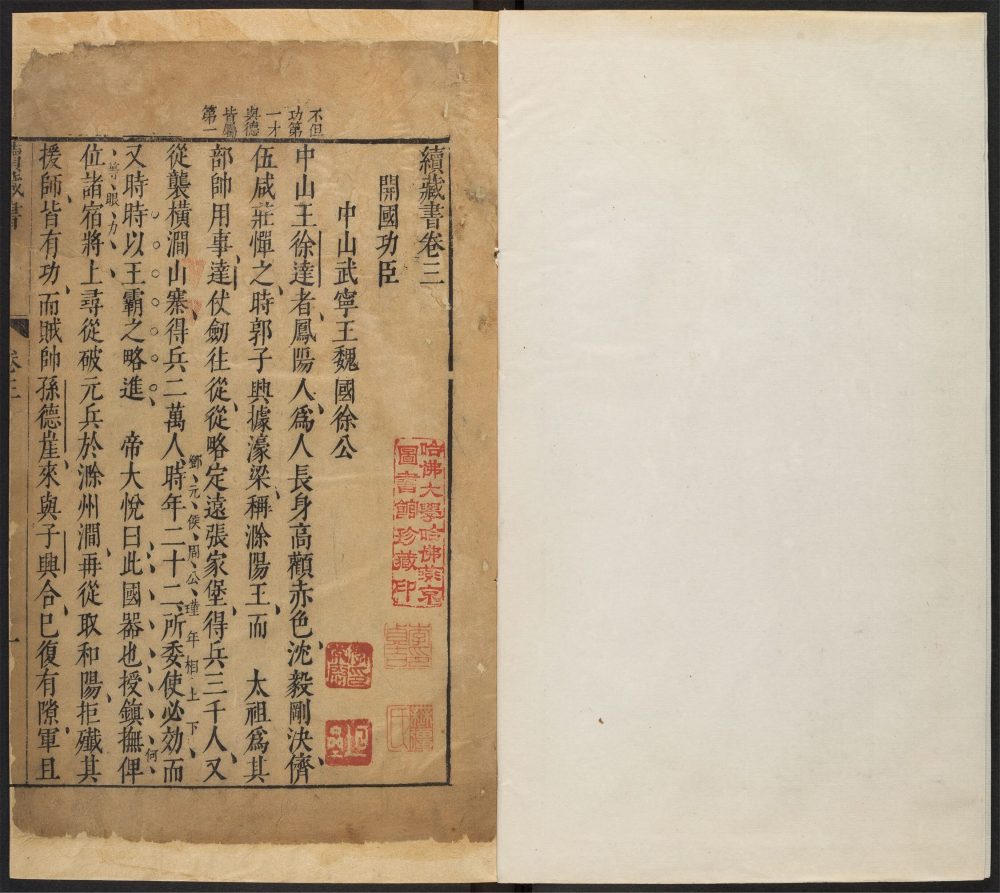 不但
功第
一才
與德
皆屬
第一
續藏書卷三
開國功臣
中山武寧王魏國徐公
中山王徐達者鳳陽人爲人長身高顴赤色沈毅剛決儕
伍咸莊憚之時郭子興據濠梁稱滁陽王而 太祖爲其
部帥用事達仗劒往從從略定遠張家堡得兵三千人又
從襲橫澗山寨得兵二萬人時年二十二所委使必効而
鄧元侯周公瑾年相上下
又時時以王霸之略進 帝大悅曰此國器也授鎮撫俾
何
等眼力
位諸宿將上尋從破元兵於滁州澗再從取和陽拒殲其
援師皆有功而賊帥孫德崖來與子興合已復有隙軍且
續藏書
卷三
一
哈佛大學哈佛燕京
圖書館珍藏印